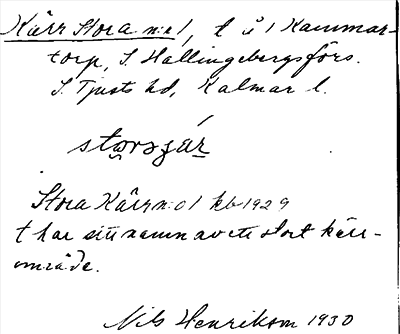 Kärr Stora n:o 1, t å 1 Kammar-
torp, S. Hallingebergsförs.
S. Tjusts hd, Kalmar l.
Stora Kärr n:o 1 kb 1929
t har sitt namn av ett stort kärr-
område.
Nils Henrikson 1930